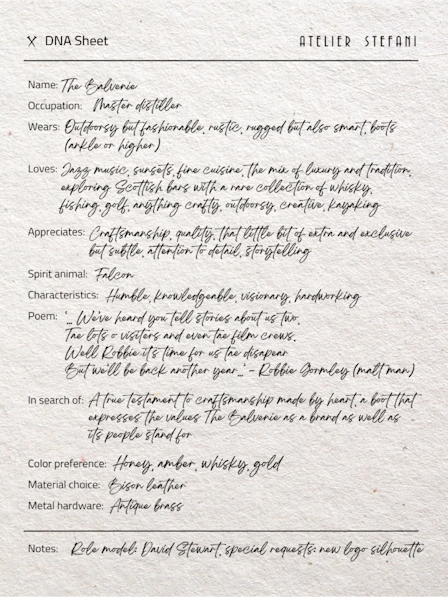 DNA Sheet
ATELIER STEFANI
Name: The Balvenie
Occupation: Master distiller
Wears: Outdoorsy but fashionable, rustic, rugged but also smart, boots
(ankle or higher)
Loves: Jazz music, sunsets, fine cuisine, the mix of luxury and tradition,
exploring Scottish bars with a rare collection of whisky,
fishing, golf, anything crafty, outdoorsy, creative, kayaking
Appreciates: Craftsmanship, quality, that little bit of extra and exclusive
but subtle, attention to detail, storytelling
Spirit animal: Falcon
Characteristics: Humble, knowledgeable, visionary, hardworking
Poem: '... We've heard you tell stories about us two,
Tae lots o visiters and even tae film crews.
Well Robbie it's time for us tae disapear
But we'll be back another year...' - Robbie Gormley (malt man)
In search of: A true testament to craftsmanship made by heart, a boot that
expresses the values The Balvenie as a brand as well as
its people stand for
Color preference: Honey, amber, whisky, gold
Material choice: Bison leather
Metal hardware: Antique brass
Notes: Role model: David Stewart, special requests: new logo silhouette